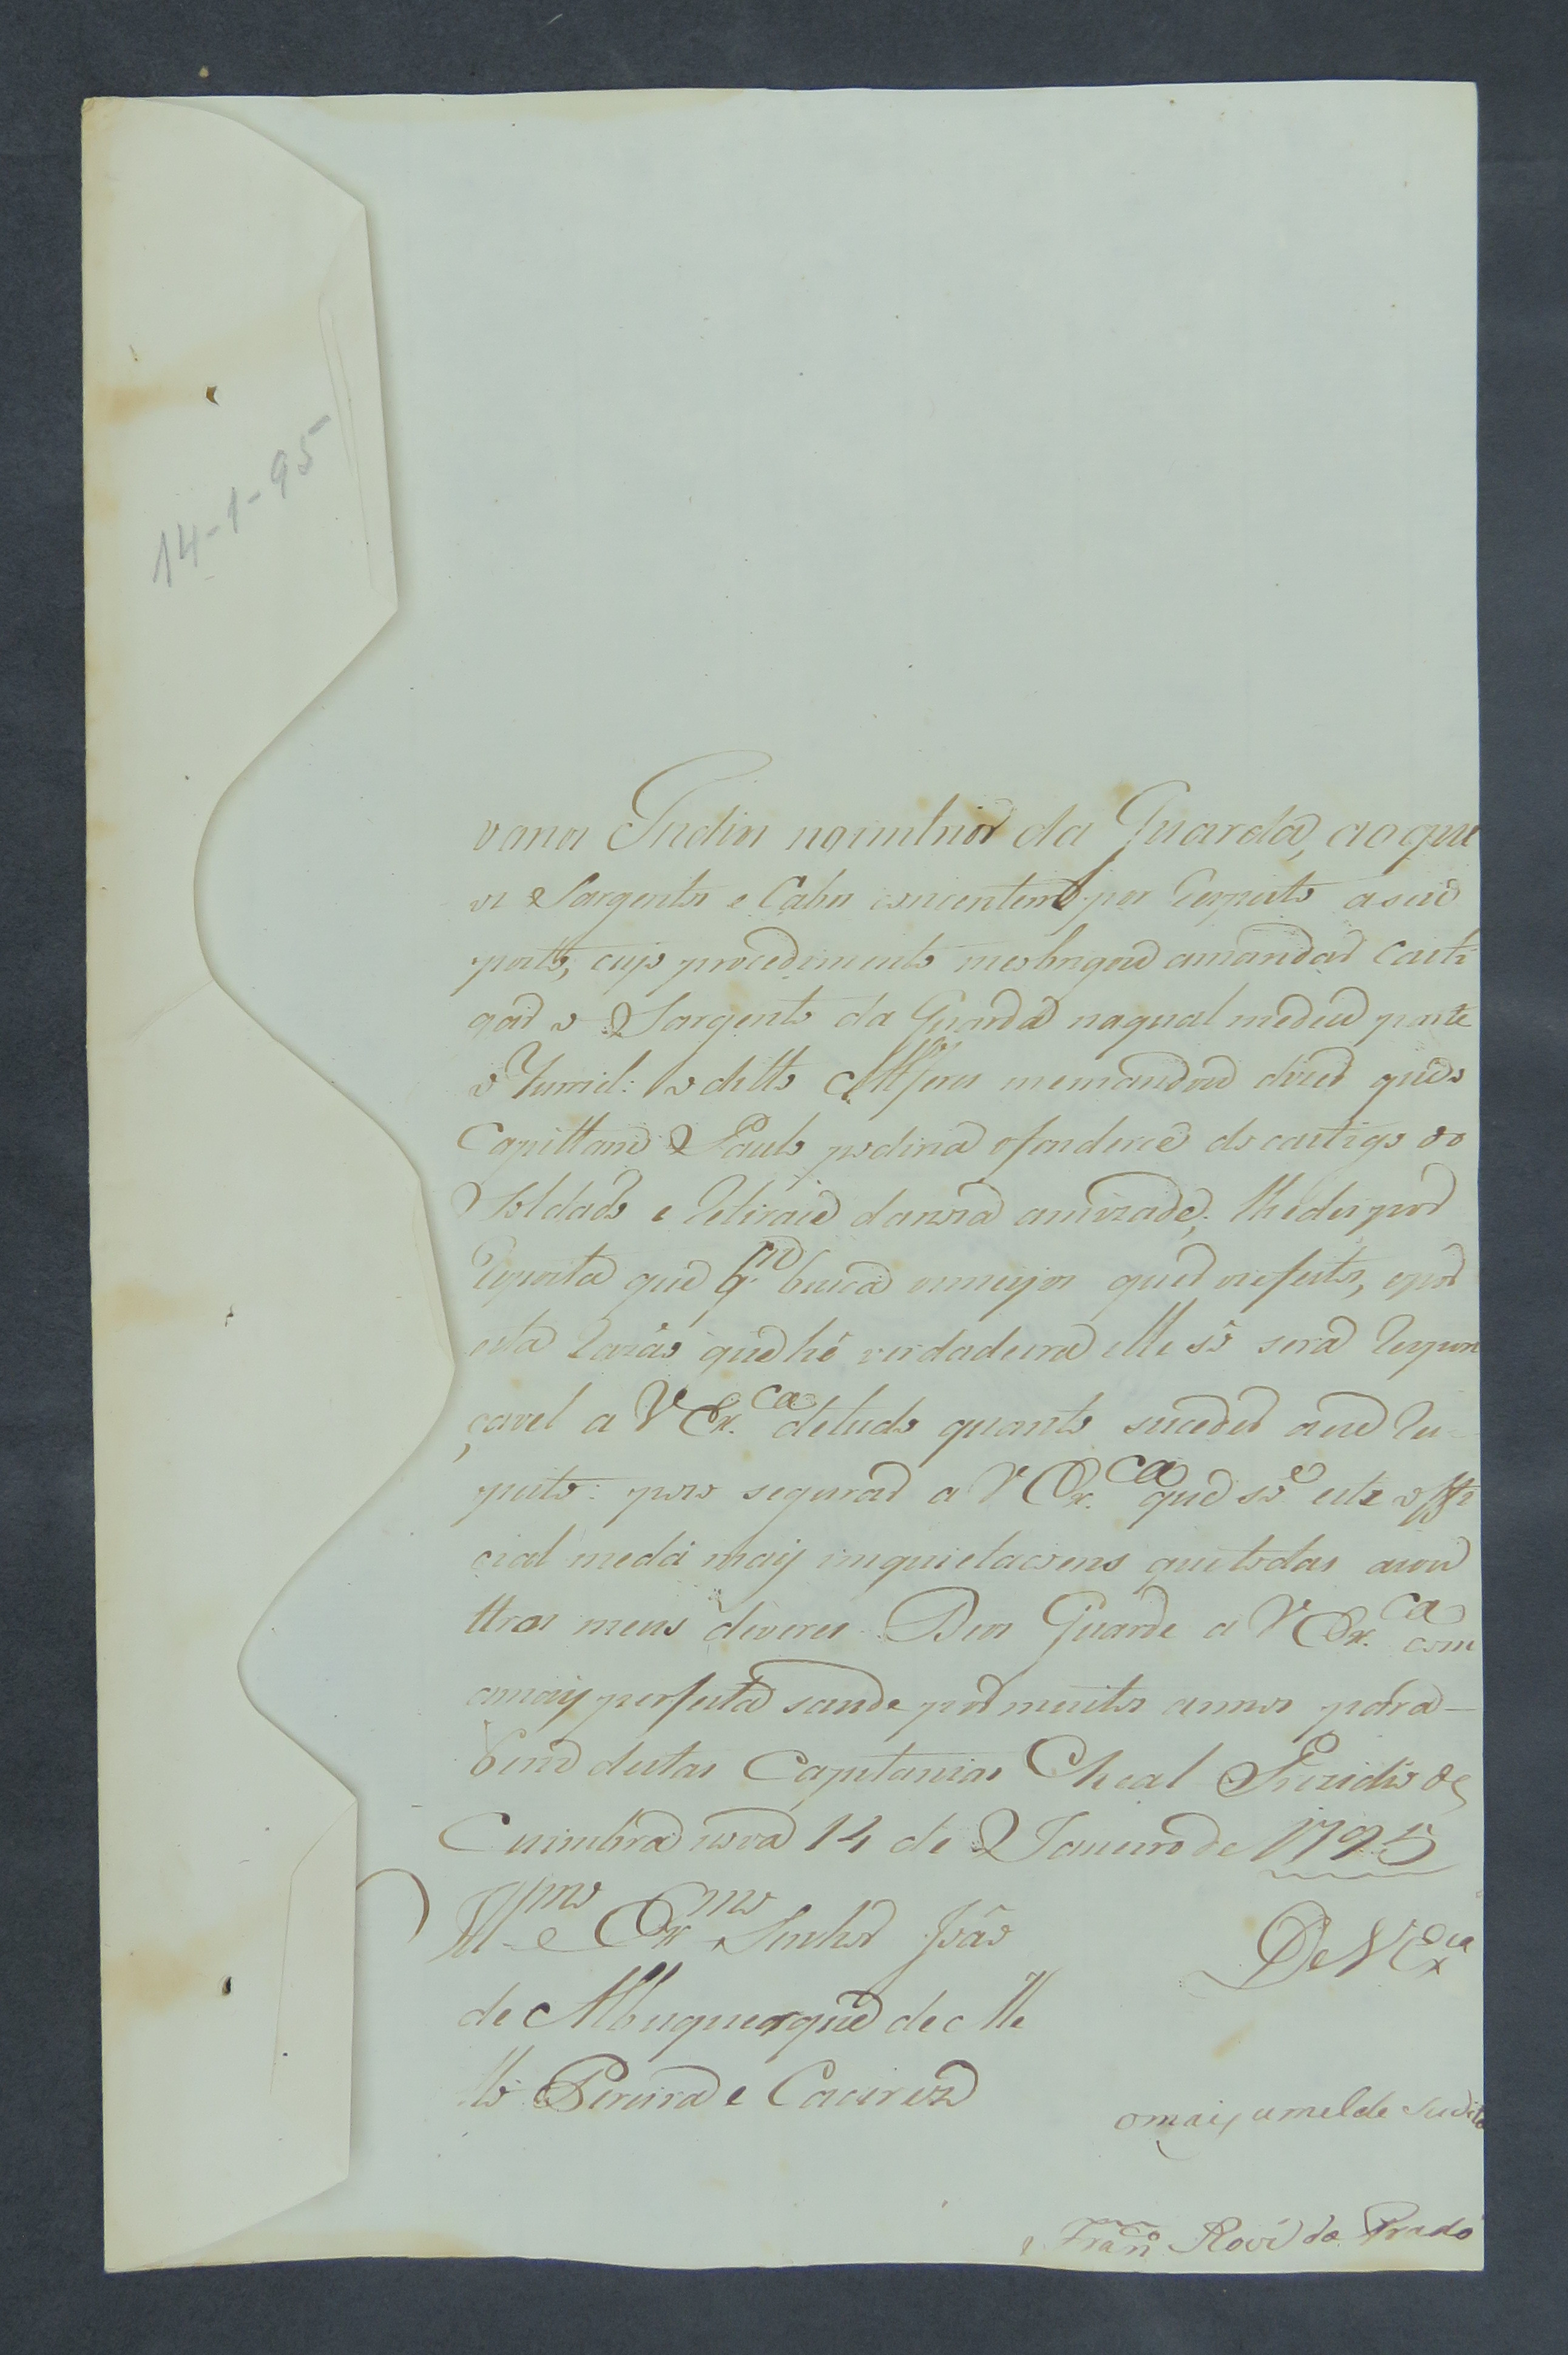 14-1-95
vana Indios no interior da Guarda, aoque
os Sargentos e Cabos consentem por respeito a seu
posto, cujo procedimento meobrigou amandar casti
gar o Sargento da Guarda naqual medeu parte
o Furriel: o ditto Alferes memandou dizer queo
Capittam Paulo podiria ofenderce do castigo do
Soldado e retirarce danosa amizade; lhedei por
reposta que q.m busca omayor quer oefeito, epor
esta razão quehé verdadeira elle só será respon
çavel a VEx.ca detudo quanto suceder aeste res-
peito: poso segurar a VEx.ca que só este offi
cial medá maiz inquietacoens quetodas asou
ttras meus deveres Deos Guarde a VEx.ca com
amaiz perfeita saude por muitos annos para-
bem destas Capitanias Real Prezidio de
Cuimbra nova 14 de Janeiro de 1795
Ill.mo e Ex.mo Senhor João
De VEx.ca
de Albuquerque de Me
llo Pereira e Caceres
omaiz umelde Sudito
Fran.co Roiz do Prado